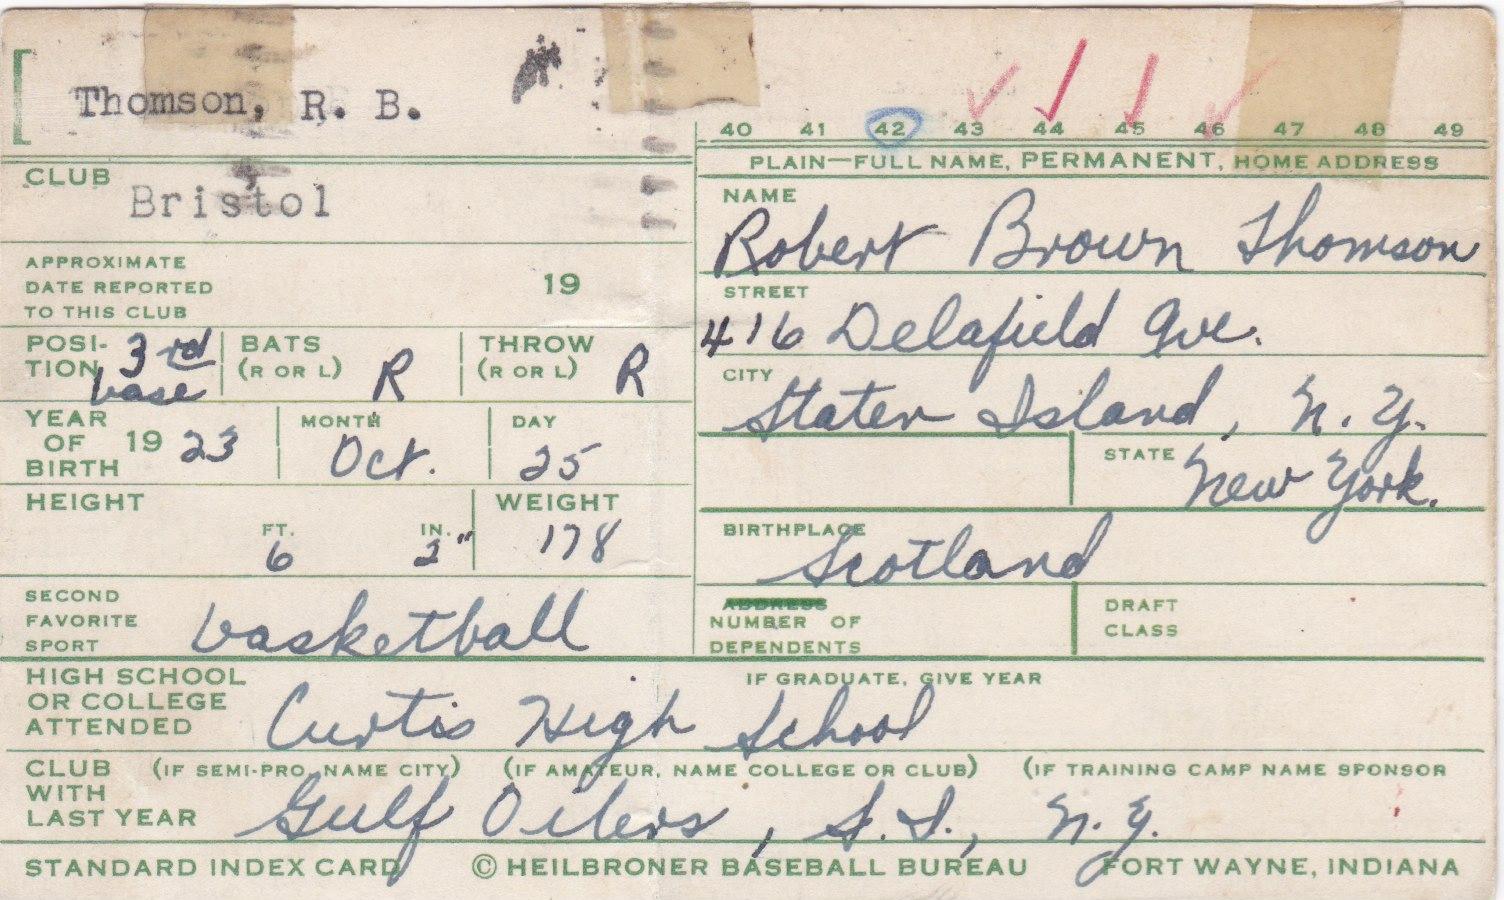 Thomson, R. B.
40 41 42 43 44 45 46 47 48 49
PLAIN—FULL NAME, PERMANENT, HOME ADDRESS
CLUB Bristol
NAME
Robert Brown Thomson
APPROXIMATE
DATE REPORTED 19
TO THIS CLUB
STREET
416 Delafield Ave.
POSI- 3rd BATS THROW
TION base (R OR L) R (R OR L) R
CITY
Staten Island, N.Y.
YEAR MONTH DAY
OF 19 23 Oct. 25
BIRTH
STATE New York.
HEIGHT WEIGHT
FT. IN. 178
6 2"
BIRTHPLACE
Scotland
SECOND
FAVORITE basketball
SPORT
ADDRESS
NUMBER OF
DEPENDENTS
DRAFT
CLASS
HIGH SCHOOL IF GRADUATE, GIVE YEAR
OR COLLEGE Curtis High School
ATTENDED
CLUB (IF SEMI-PRO, NAME CITY) (IF AMATEUR, NAME COLLEGE OR CLUB) (IF TRAINING CAMP NAME SPONSOR
WITH
LAST YEAR Gulf Oilers, S.I., N.Y.
STANDARD INDEX CARD © HEILBRONER BASEBALL BUREAU FORT WAYNE, INDIANA